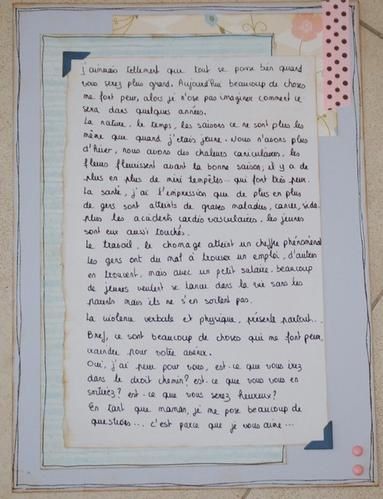 j'aimerais tellement que tout se passe bien quand
vous serez plus grand. Aujourd'hui beaucoup de choses
me font peur, alors je n'ose pas imaginer comment ce
sera dans quelques années.
La nature, le temps, les saisons ce ne sont plus les
même que quand j'étais jeune. Nous n'avons plus
d'hiver, nous avons des chaleurs caniculaires, les
fleurs fleurissent avant la bonne saison, il y a de
plus en plus de mini tempêtes qui font très peur.
La santé, j'ai l'impression que de plus en plus
de gens sont atteints de graves maladies, cancer, sida
plus les accidents cardio vasculaires, les jeunes
sont eux aussi touchés.
Le travail, le chomage atteint un chiffre phénoménal
les gens ont du mal à trouver un emploi, d'autres
en trouvent, mais avec un petit salaire. beaucoup
de jeunes veulent se lancer dans la vie sans les
parents mais ils ne s'en sortent pas.
La violence verbale et physique, présente partout...
Bref, ce sont beaucoup de choses qui me font peur,
craindre pour votre avenir.
Oui, j'ai peur pour vous, est-ce que vous irez
dans le droit chemin? est-ce que vous vous en
sortirez? est-ce que vous serez heureux?
En tant que maman, je me pose beaucoup de
questions... c'est parce que je vous aime...